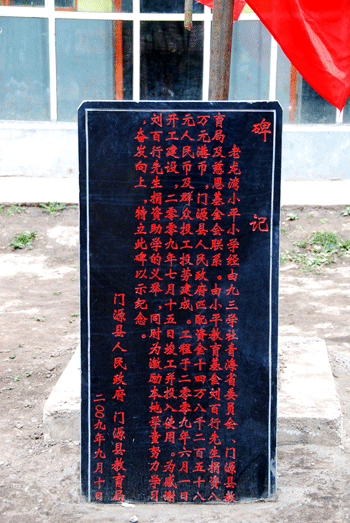 碑记
老龙湾小平小学经由九三学社青海省委员会、门源县教
育局及慈恩基金会联系。由小平教育基金刘百行先生捐资八
万元港币,门源县人民政府匹配资金十四万八千二百五十八
元人民币及群众投工投劳建成。工程于二零零九年六月一日
开工建设,二零零九年七月十五日竣工并投入使用。为感谢
刘百行先生捐资助学的义举,同时为激励本地学童努力学习
,奋发向上,特立此碑以示纪念。
门源县人民政府 门源县教育局
二〇〇九年九月十日